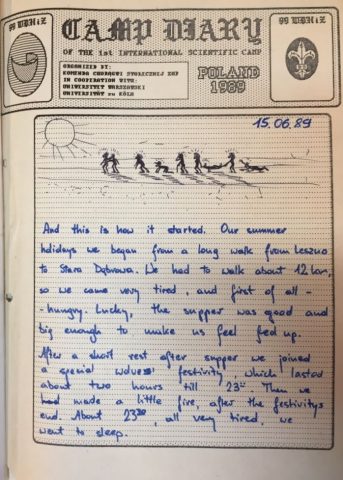 99 WDH i Z
CAMP DIARY
99 WDH i Z
OF THE 1st INTERNATIONAL SCIENTIFIC CAMP
ORGANIZED BY:
KOMENDA CHORĄGWI STOŁECZNEJ ZHP
IN COOPERATION WITH:
UNIWERSYTET WARSZAWSKI
UNIVERSITÄT zu KÖLN
POLAND
1989
15.06.89
And this is how it started. Our summer
holidays we began from a long walk from Leszno
to Stara Dąbrowa. We had to walk about 12 km,
so we came very tired, and first of all -
- hungry. Lucky, the supper was good and
big enough to make us feel fed up.
After a short rest after supper we joined
a special festivity, which lasted
about two hours till 23⁰⁰. Then we
had made a little fire, after the festivitys
end. About 23³⁰, all very tired, we
went to sleep.